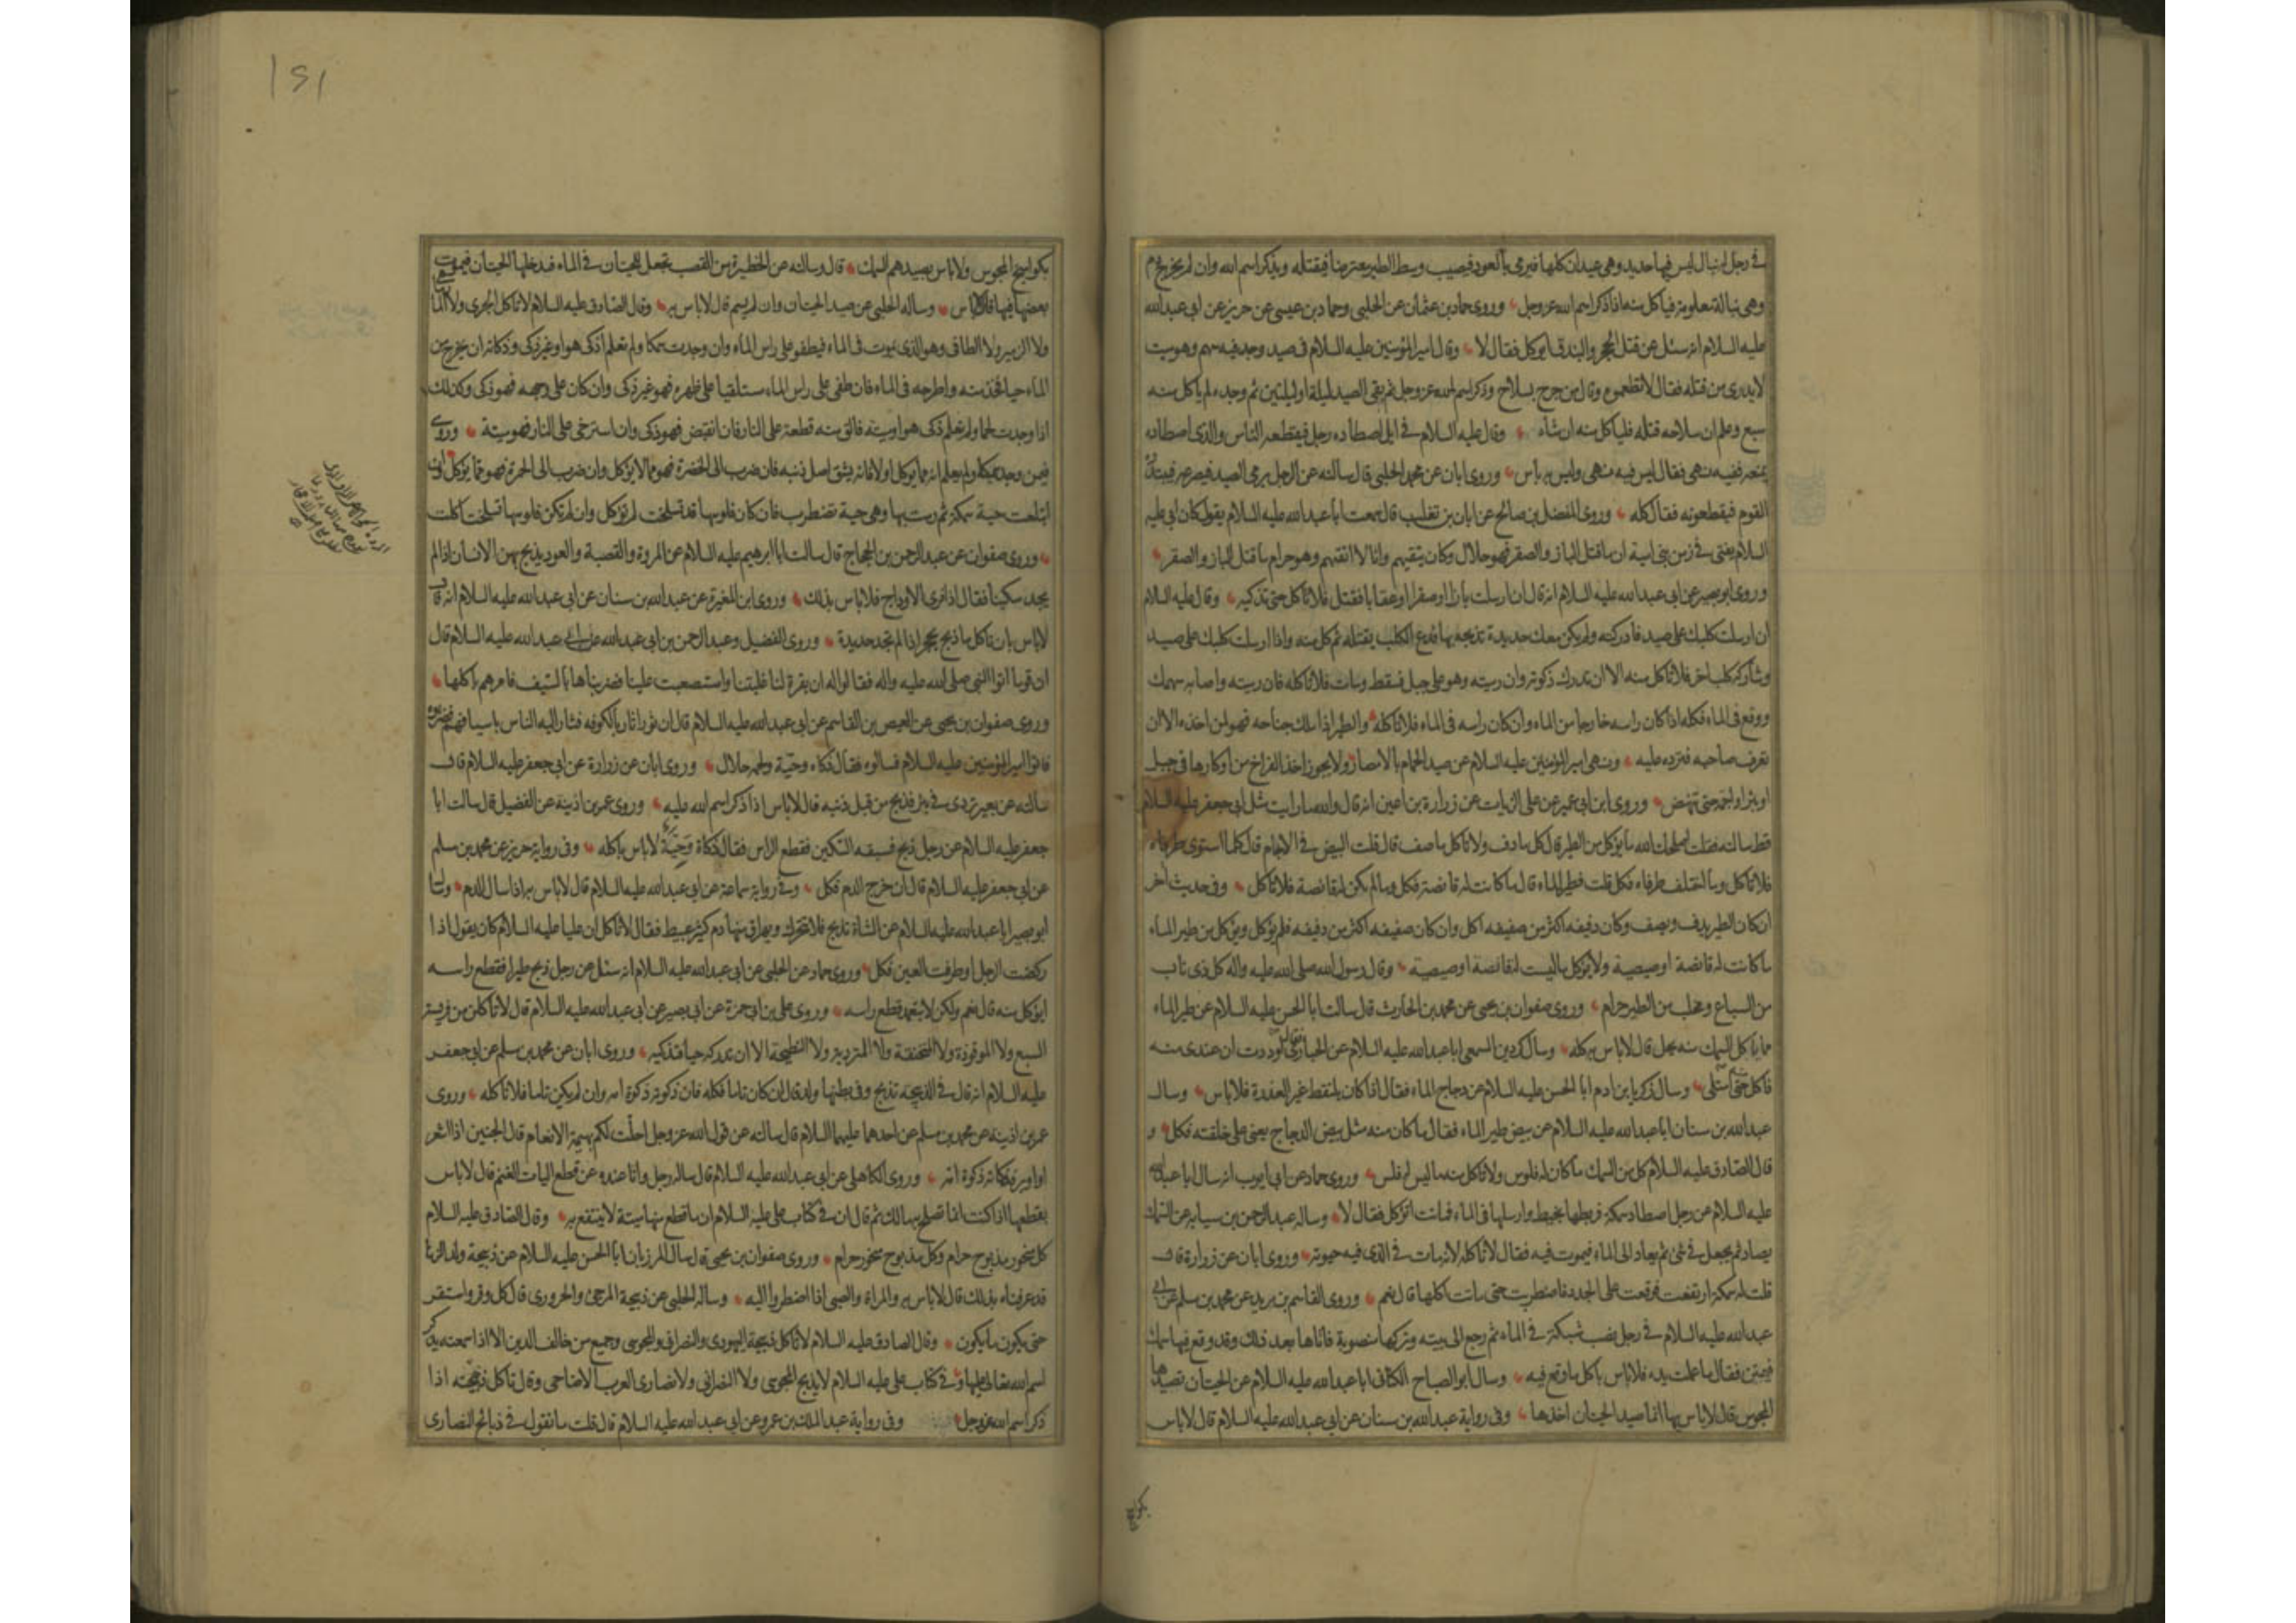 في رجل له نبال ليس فيها حديد وهي عيدان كلها فيرمي بالعود فيصيب وسط الطير معترضا فيقتله ويذكر اسم الله وان لم يخرج دم
وهي نبالة معلومة فياكل منه اذا ذكر اسم الله عز وجل وروى حماد بن عثمان عن الحلبي وحماد بن عيسى عن حريز عن ابي عبد الله
عليه السلام انه سئل عن قتل الحجر والبندق ايوكل فقال لا وقال امير المؤمنين عليه السلام في صيد وجد فيه سهم وهو ميت
لا يدرى من قتله فقال لا تطعموه وقال من جرح بسلاح وذكر اسم الله عز وجل ثم بقي الصيد ليلة او ليلتين ثم وجده لم ياكل منه
سبع وعلم ان سلاحه قتله فلياكل منه ان شاء وقال عليه السلام في ايل اصطاده رجل فيقطعه الناس والذي اصطاده
يمنعه ففيه نهى فقال ليس فيه نهى وليس به باس وروى ابان عن محمد الحلبي قال سالته عن الرجل يرمي الصيد فيصرعه فيبتدره
القوم فيقطعونه فقال كله وروى المفضل بن صالح عن ابان بن تغلب قال سمعت ابا عبد الله عليه السلام يقول كان ابي عليه
السلام يفتي في زمن بني امية ان ما قتل الباز والصقر فهو حلال وكان يتقيهم وانا لا اتقيهم وهو حرام ما قتل الباز والصقر
وروى ابو بصير عن ابي عبد الله عليه السلام انه قال ان ارسلت بازا او صقرا او عقابا فقتل فلا تاكل حتى تذكيه وقال عليه السلام
ان ارسلت كلبك على صيد فادركته ولم يكن معك حديدة تذبحه بها فدع الكلب يقتله ثم كل منه واذا ارسلت كلبك على صيد
وشاركه كلب اخر فلا تاكل منه الا ان تدرك ذكوته وان رميته وهو على جبل فسقط ومات فلا تاكله فان رميته واصابه سهمك
ووقع في الماء فكله اذا كان راسه خارجا من الماء وان كان راسه في الماء فلا تاكله والطير اذا ملك جناحه فهو لمن اخذه الا ان
تعرف صاحبه فترده عليه ونهى امير المؤمنين عليه السلام عن صيد الحمام بالامصار ولا يجوز اخذ الفراخ من اوكارها في جبل
او بئر او اجمة حتى تنهض وروى ابن ابي عمير عن علي الزيات عن زرارة بن اعين انه قال والله ما رايت مثل ابي جعفر عليه السلام
قط سالته فقلت اصلحك الله ما يؤكل من الطير قال كل ما دف ولا تاكل ما صف قال قلت البيض في الاجام قال كلما استوى طرفاه
فلا تاكل وما اختلف طرفاه فكل قلت فطير الماء قال ما كانت له قانصة فكل وما لم يكن له قانصة فلا تاكل وفي حديث اخر
ان كان الطير يدف ويصف وكان دفيفه اكثر من صفيفه اكل وان كان صفيفه اكثر من دفيفه فلم يؤكل ويؤكل من طير الماء
ما كانت له قانصة او صيصية ولا يؤكل ما ليست له قانصة او صيصية وقال رسول الله صلى الله عليه واله كل ذي ناب
من السباع ومخلب من الطير حرام وروى صفوان بن يحيى عن محمد بن الحارث قال سالت ابا الحسن عليه السلام عن طير الماء
مما ياكل السمك منه يحل قال لا باس به كله وسال كردين المسمعي ابا عبد الله عليه السلام عن الحبارى فقال لوددت ان عندي منه
فاكل حتى امتلي وسال زكريا بن ادم ابا الحسن عليه السلام عن دجاج الماء فقال اذا كان يلتقط غير العذرة فلا باس وسال
عبد الله بن سنان ابا عبد الله عليه السلام عن بيض طير الماء فقال ما كان منه مثل بيض الدجاج يعني على خلقته فكل و
قال الصادق عليه السلام كل من السمك ما كان له فلوس ولا تاكل منه ما ليس له فلس وروى حماد عن ابي ايوب انه سال ابا عبد الله
عليه السلام عن رجل اصطاد سمكة فربطها بخيط وارسلها في الماء فماتت اتؤكل فقال لا وساله عبد الرحمن بن سيابه عن السمك
يصاد ثم يجعل في شئ ثم يعاد الى الماء فيموت فيه فقال لا تاكله لانه مات في الذي فيه حيوته وروى ابان عن زرارة قال
قلت له سمكة ارتفعت فوقعت على الجدد فاضطربت حتى ماتت اكلها قال نعم وروى القاسم بن بريد عن محمد بن مسلم عن ابي
عبد الله عليه السلام في رجل نصب شبكة في الماء ثم رجع الى بيته وتركها منصوبة فاتاها بعد ذلك وقد وقع فيها سمك
فيمتن فقال ما عملت يده فلا باس باكل ما وقع فيه وسال ابو الصباح الكناني ابا عبد الله عليه السلام عن الحيتان تصيدها
المجوس قال لا باس بها انما صيد الحيتان اخذها وفي رواية عبد الله بن سنان عن ابي عبد الله عليه السلام قال لا باس
بكواميخ المجوس ولا باس بصيدهم السمك قال وسالته عن الحظيرة من القصب تجعل للحيتان في الماء فيدخلها الحيتان فيموت
بعضها فيها قال لا باس وساله الحلبي عن صيد الحيتان وان لم يسم قال لا باس به وقال الصادق عليه السلام لا تاكل الجري ولا المارماهي
ولا الزمير ولا الطافي وهو الذي يموت في الماء فيطفو على راس الماء وان وجدت سمكا ولم تعلم اذكي هو او غير ذكي وذكاته ان يخرج من
الماء حيا فخذ منه واطرحه في الماء فان طفى على راس الماء مستلقيا على ظهره فهو غير ذكي وان كان على وجهه فهو ذكي وكذلك
اذا وجدت لحما ولم تعلم ذكي هو او ميتة فالق منه قطعة على النار فان انقبض فهو ذكي وان استرخى على النار فهو ميتة وروي
فيمن وجد سمكا ولم يعلم انه مما يوكل او لا فانه يشق اصل ذنبه فان ضرب الى الخضرة فهو مما لا يؤكل وان ضرب الى الحمرة فهو مما يؤكل وان
ابتلعت حية سمكة ثم رمت بها وهي حية تضطرب فان كان فلوسها قد تسلخت لم تؤكل وان لم تكن فلوسها تسلخت اكلت
وروى صفوان عن عبد الرحمن بن الحجاج قال سالت ابا ابرهيم عليه السلام عن المروة والقصبة والعود يذبح بهن الانسان اذا لم
يجد سكينا فقال اذا فرى الاوداج فلا باس بذلك وروى ابن المغيرة عن عبد الله بن سنان عن ابي عبد الله عليه السلام انه قال
لا باس بان تاكل ما ذبح بحجر اذا لم تجد حديدة وروى الفضيل وعبد الرحمن بن ابي عبد الله عن ابي عبد الله عليه السلام قال
ان قوما اتوا النبي صلى الله عليه واله فقالوا له ان بقرة لنا غلبتنا واستصعبت علينا فضربناها بالسيف فامرهم باكلها
وروى صفوان بن يحيى عن العيص بن القاسم عن ابي عبد الله عليه السلام قال ان ثورا ثار بالكوفه فثار اليه الناس باسيافهم فضربوه
فاتوا امير المؤمنين عليه السلام فسالوه فقال ذكاه وحيّة ولحمه حلال وروى ابان عن زرارة عن ابي جعفر عليه السلام قال
سالته عن بعير تردى في بئر فذبح من قبل ذنبه قال لا باس اذا ذكر اسم الله عليه وروى عمر بن اذينة عن الفضيل قال سالت ابا
جعفر عليه السلام عن رجل ذبح فسبقه السكين فقطع الراس فقال ذكاة وحيّة لا باس باكله وفي رواية حريز عن محمد بن مسلم
عن ابي جعفر عليه السلام قال ان خرج الدم فكل وفي رواية سماعة عن ابي عبد الله عليه السلام قال لا باس به اذا سال الدم
ابو بصير ابا عبد الله عليه السلام عن الشاة تذبح فلا تتحرك ويهراق منها دم كثير عبيط فقال لا تاكل ان عليا عليه السلام كان يقول اذا
ركضت الرجل او طرفت العين فكل وروى حماد عن الحلبي عن ابي عبد الله عليه السلام انه سئل عن رجل ذبح طيرا فقطع راسه
ايؤكل منه قال نعم ولكن لا يتعمد قطع راسه وروى علي بن ابي حمزة عن ابي بصير عن ابي عبد الله عليه السلام قال لا تاكل من فريسة
السبع ولا الموقوذة ولا المنخنقة ولا المتردية ولا النطيحة الا ان تدركه حيا فتذكيه وروى ابان عن محمد بن مسلم عن ابي جعفر
عليه السلام انه قال في الذبيحة تذبح وفي بطنها ولد قال ان كان تاما فكله فان ذكوته ذكوة امه وان لم يكن تاما فلا تاكله وروى
عمر بن اذينه عن محمد بن مسلم عن احدهما عليهما السلام قال سالته عن قول الله عز وجل احلّت لكم بهيمة الانعام قال الجنين اذا اشعر
او اوبر فذكاته ذكوة امه وروى الكاهلي عن ابي عبد الله عليه السلام قال ساله رجل وانا عنده عن قطع اليات الغنم قال لا باس
بقطعها اذا كنت انما تصلح بها مالك ثم قال ان في كتاب علي عليه السلام ان ما قطع منها ميتة لا ينتفع به وقال الصادق عليه السلام
كل منحور مذبوح حرام وكل مذبوح منحور حرام وروى صفوان بن يحيى قال سال المرزبان ابا الحسن عليه السلام عن ذبيحة ولد الزنا
قد عرفناه بذلك قال لا باس به والمراة والصبي اذا اضطروا اليه وساله الحلبي عن ذبيحة المرجئ والحروري قال كل وقر واستقر
حتى يكون ما يكون وقال الصادق عليه السلام لا تاكل ذبيحة اليهودي والنصراني والمجوسي وجميع من خالف الدين الا اذا سمعته يذكر
اسم الله تعالى عليها وفي كتاب علي عليه السلام لا يذبح المجوسي ولا النصراني ولا نصارى العرب الاضاحي وقال تاكل ذبيحته اذا
ذكر اسم الله عز وجل وفي رواية عبد الملك بن عمرو عن ابي عبد الله عليه السلام قال قلت ما تقول في ذبائح النصارى